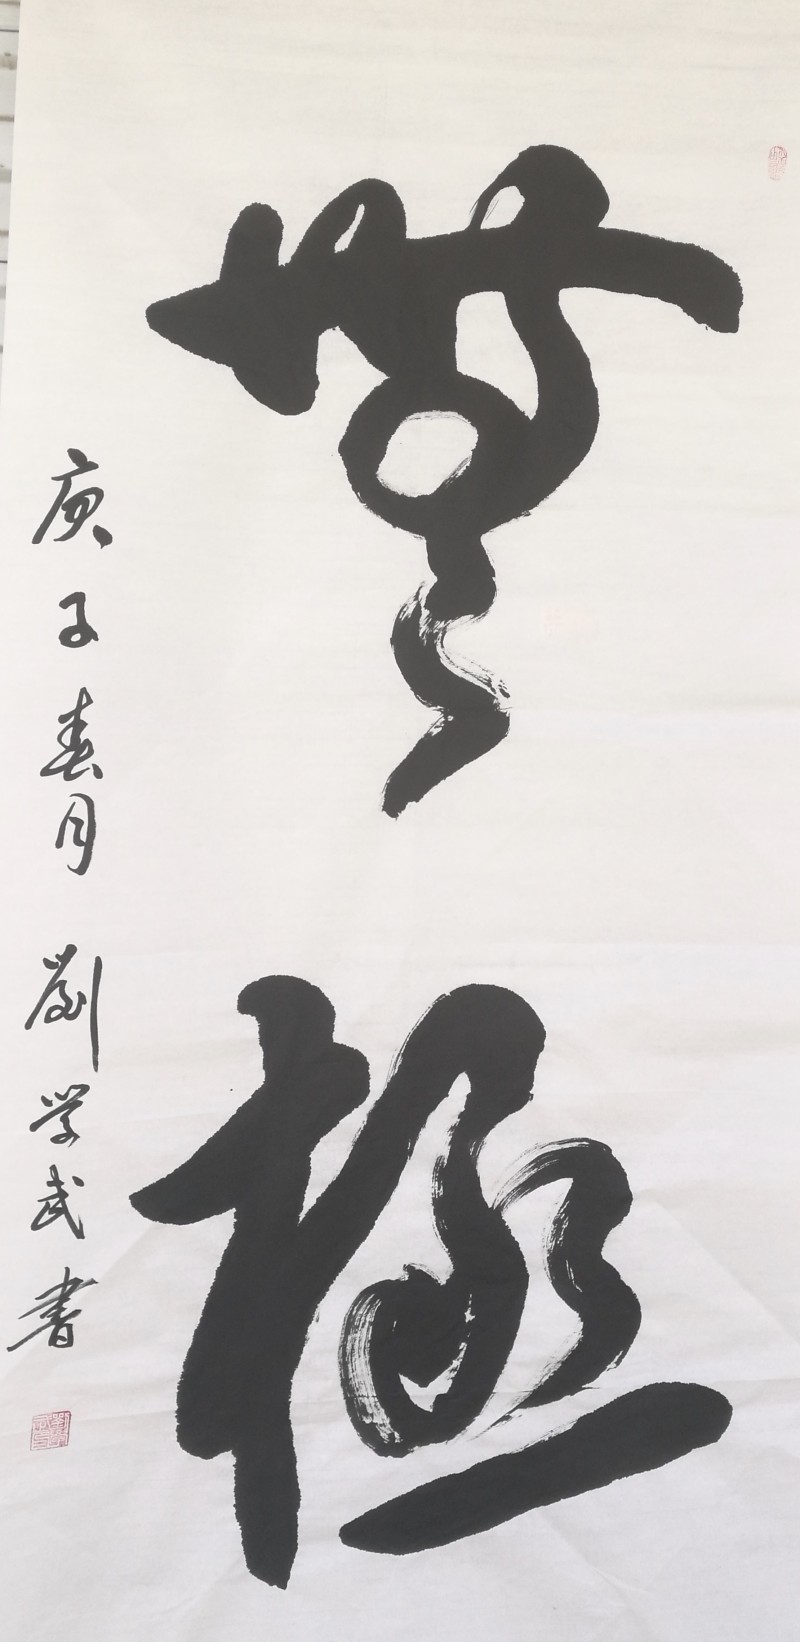 無極
庚子春月 劉学武書